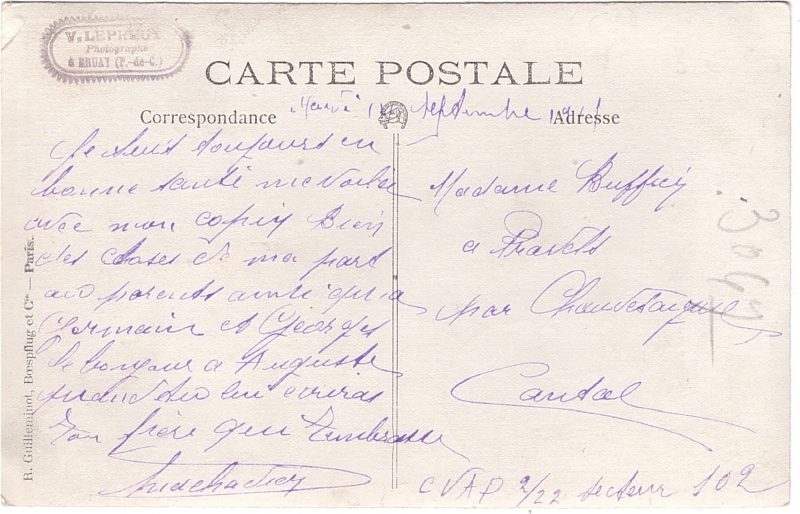 V. LEPREUX
Photographe
à BRUAY (P.-de-C.)
CARTE POSTALE
Correspondance
Adresse
septembre
Je suis toujours en
bonne santé me voila
avec mon copin Bien
des choses de ma part
au parents ainsi qu'a
Germain et Georges
le bonjour a Auguste
quand tu lui ecriras
Ton frère qui t'embrasse
Madame Buffiéj
a
par Chaudesaigues
Cantal
CVAP 2/22 secteur 102
R. Guilleminot, Bœspflug et Cie — Paris.